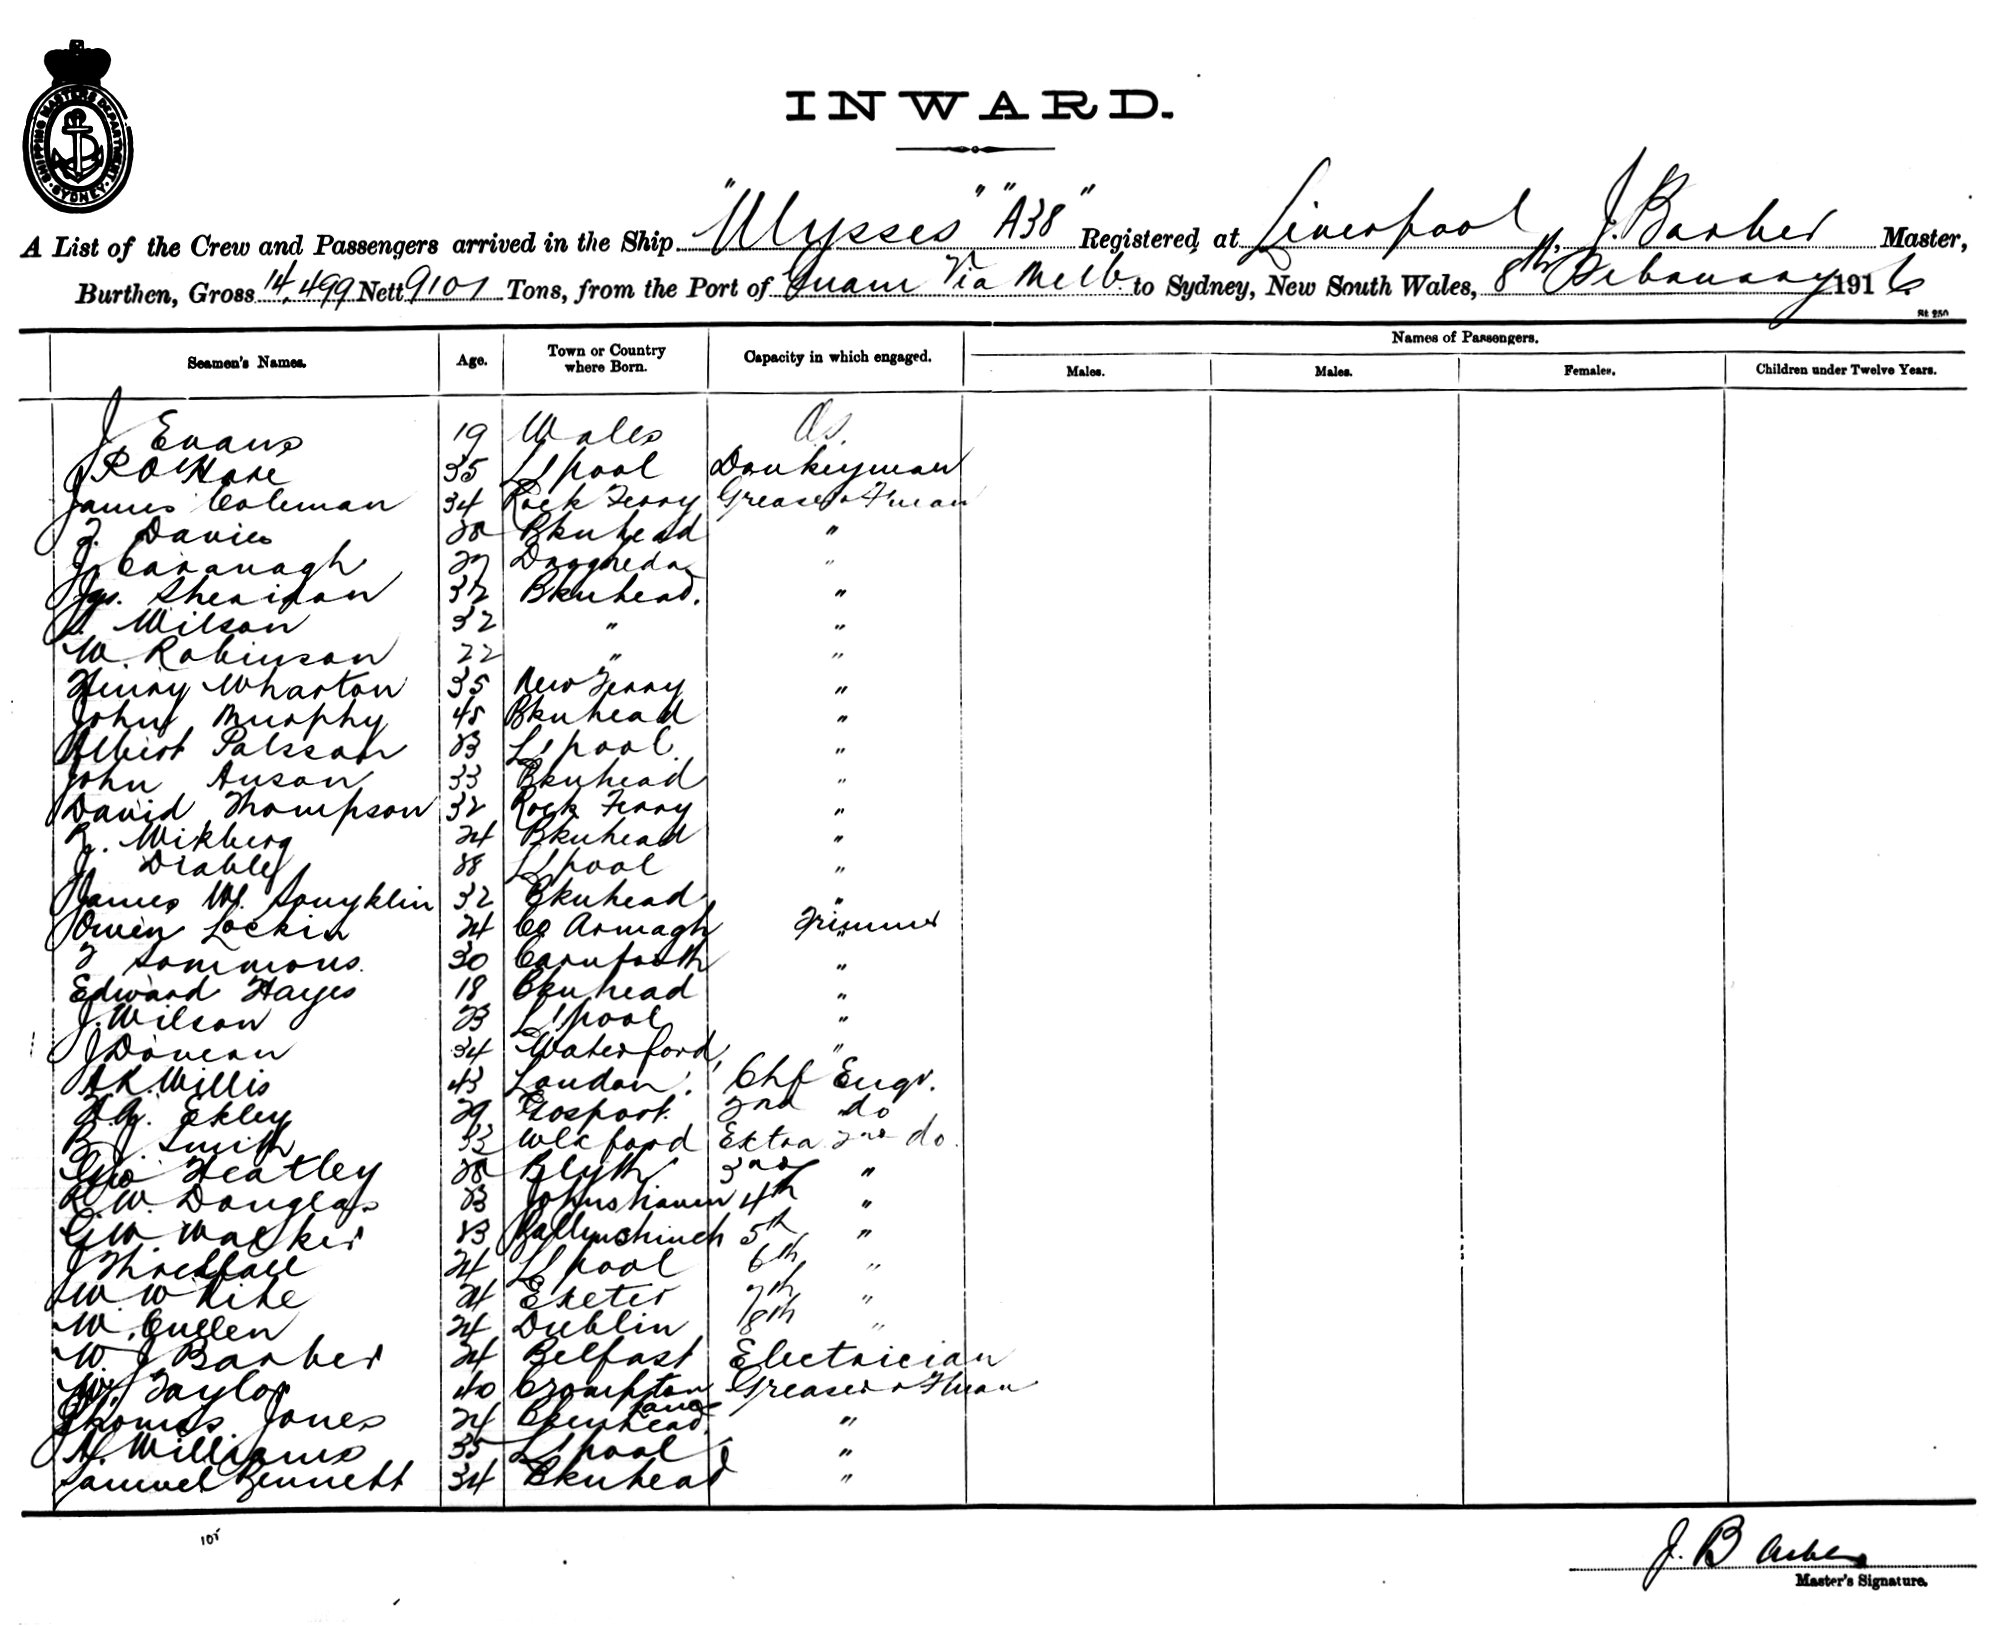 SHIPPING MASTERS DEPARTMENT. SYDNEY.
INWARD.
A List of the Crew and Passengers arrived in the Ship "Ulysses" "A38" Registered at Liverpool, J. Barber Master,
Burthen, Gross 14,499 Nett 9101 Tons, from the Port of Via Melb. to Sydney, New South Wales, 8th February 1916.
Seamen's Names. Age. Town or Country where Born. Capacity in which engaged. Names of Passengers.
Males. Males. Females. Children under Twelve Years.
J Evans 19 Wales O.S.
J R O'Hare 35 L'pool Donkeyman
James Coleman 34 Rock Ferry Greaser & Fman
J. Davies 28 Bknhead "
J Cavanagh 27 "
Jas. Sheridan 32 Bknhead. "
Wilson 32 " "
W. Robinson 22 " "
Henry Wharton 35 New Ferry "
John Murphy 45 Bknhead "
Albert Palsson 23 L'pool. "
John Anson 33 Bknhead "
David Thompson 32 Rock Ferry "
R. Wikberg 24 Bknhead "
J. 28 L'pool "
James 32 Bknhead "
Owen Lockin 24 Co Armagh Trimmer
30 Carnforth "
Edward Hayes 18 Bknhead "
J. Wilson 23 L'pool "
J 34 Waterford, "
A R Willis 43 London. Chf Engr.
Ekley 29 Gosport. 2nd do
B J. Smith 33 Wexford Extra 2nd do.
Geo Heatley 28 Blyth 3rd "
R. W. Douglas 23 Johnshaven 4th "
G W Walker 23 Ballynahinch 5th "
J Threlfall 24 L'pool 6th "
W White 24 Exeter 7th "
W. Cullen 24 Dublin 8th "
W. J Barber 24 Belfast Electrician
W. Taylor 40 Crompton Greaser & Fman
Lane
Thomas Jones 24 Bkenhead. "
H. Williams 35 L'pool "
Samuel Bennett 34 Bknhead "
J. Barber
Master's Signature.